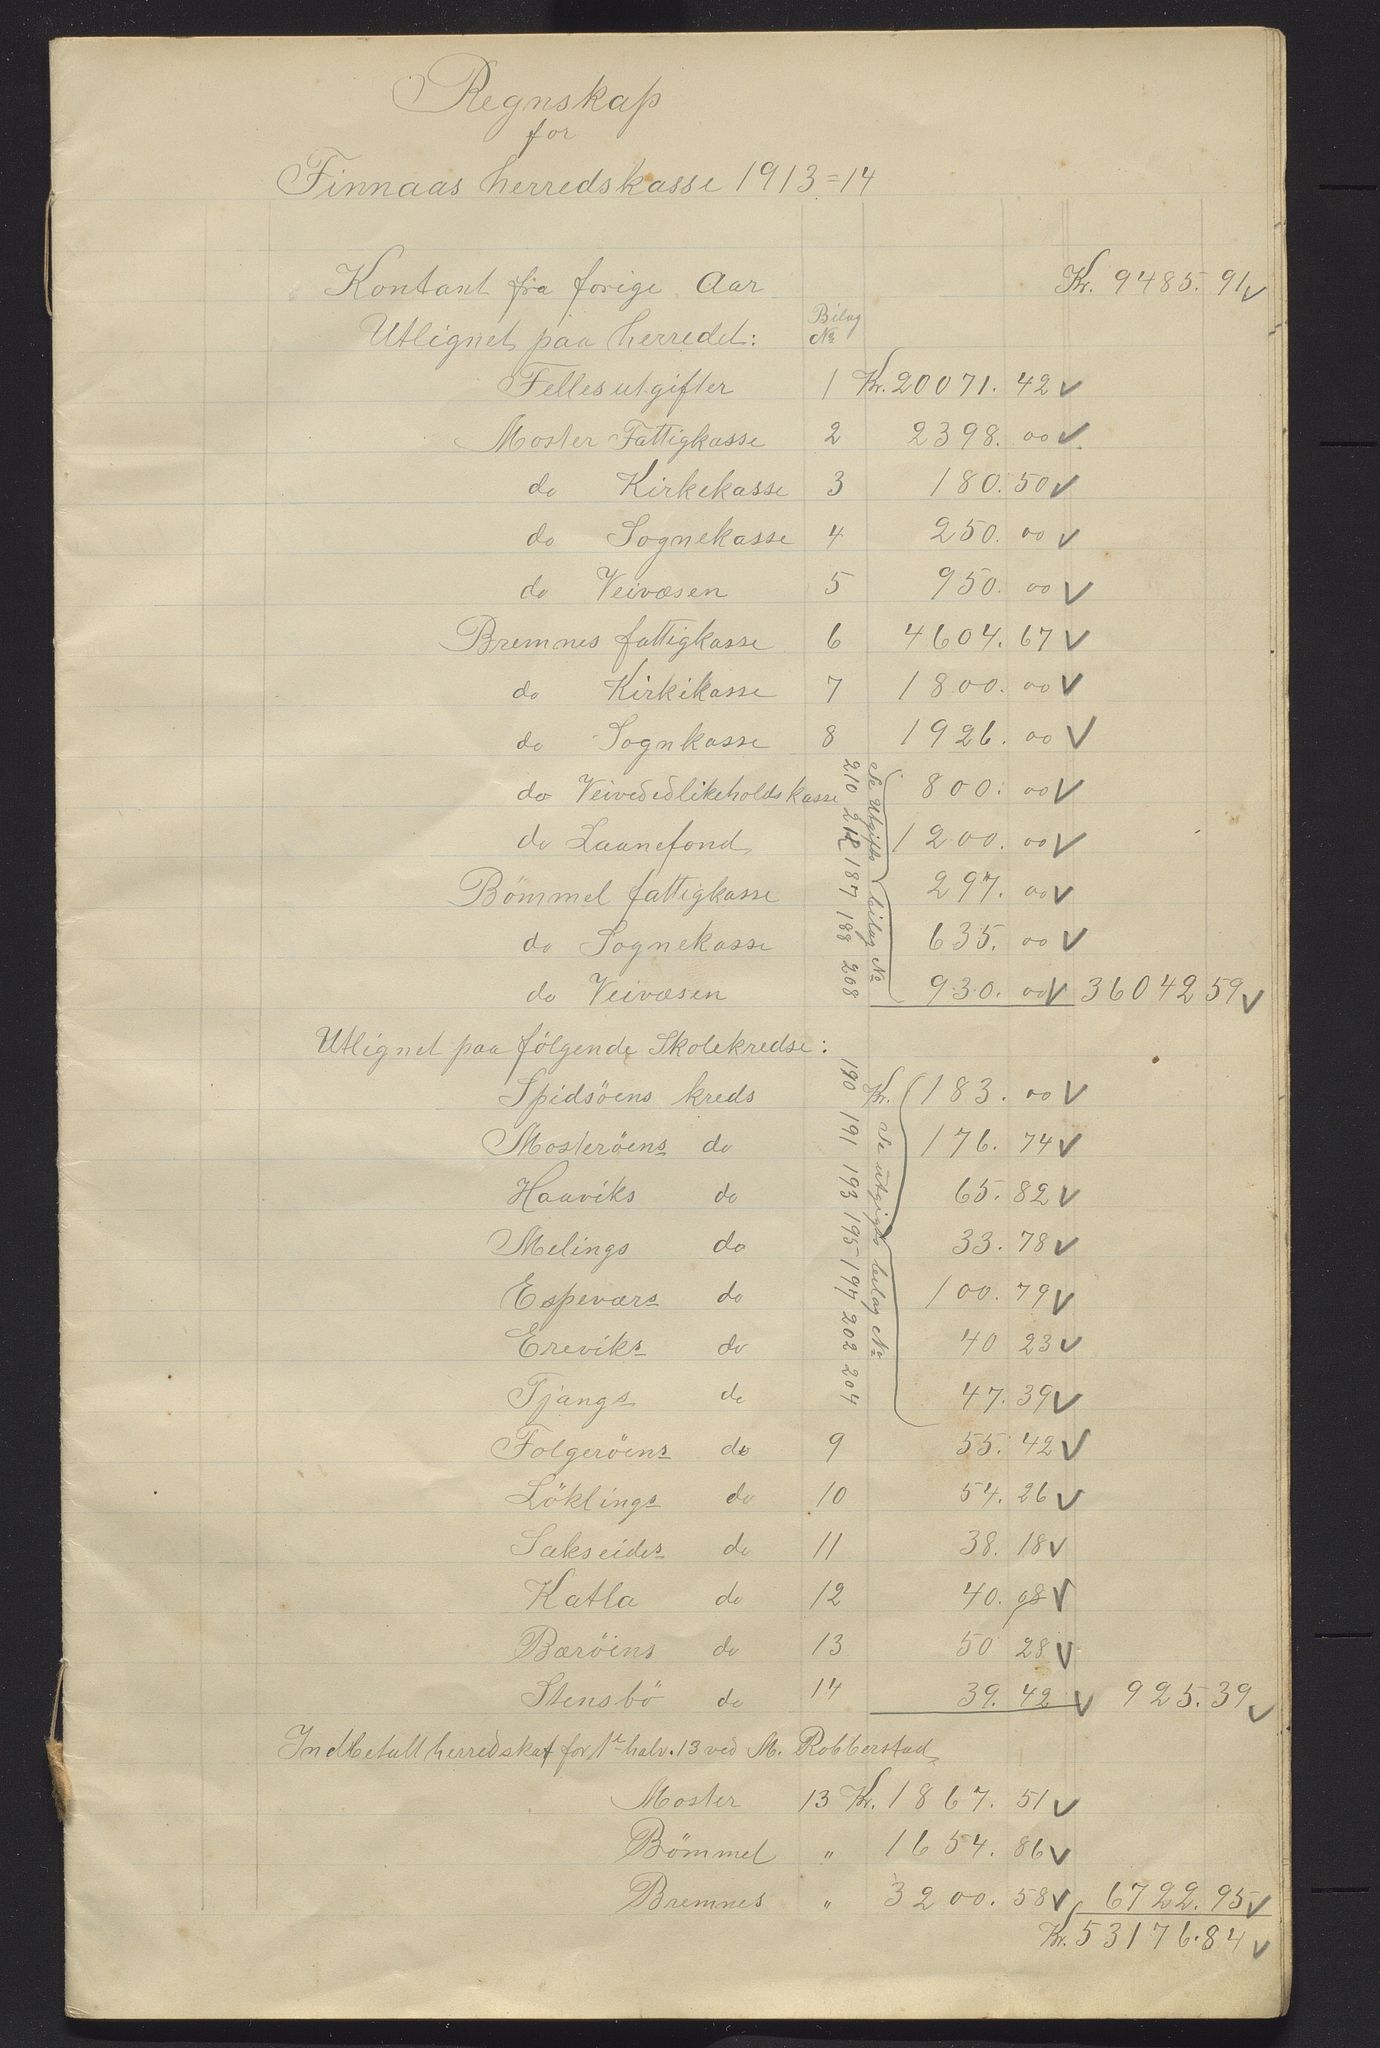 Regnskap
for
Finnaas herredskasse 1913=14
Kontant fra forige Aar Kr. 9485. 91
Utlignet paa herredet: Bilag No
Fellesutgifter 1 Kr. 20071. 42
Moster Fattigkasse 2 2398. 00
do Kirkekasse 3 180. 50
do Sognekasse 4 250. 00
do Veivæsen 5 950. 00
Bremnes fattigkasse 6 4604. 67
do Kirkikasse 7 1800. 00
do Sognkasse 8 1926. 00
do Veivedlikeholdskasse 210 800. 00
do Laanefond 212 1200. 00
Bömmel fattigkasse 187 297. 00
do Sognekasse 188 635. 00
do Veivæsen 208 930. 00 36042 59
Se Utgifts bilag No
Utlignet paa følgende Skolekredse:
Spidsöens kreds 190 Kr. 183. 00
Mosteröens do 191 176. 74
Haaviks do 193 65. 82
Melings do 195 33. 78
Espeværs do 197 100. 79
Ereviks do 202 40 23
Tjangs do 204 47. 39
Se utgifts bilag No
Folgeröens do 9 55. 42
Löklings do 10 54. 26
Sakseides do 11 38. 18
Katla do 12 40. 08
Bæröens do 13 50 28
Stensbö do 14 39. 42 925. 39
Indbetalt herredskat for 1ste halv. 13 ved M. Robberstad
Moster 13 Kr. 1867. 51
Bömmel " 1654. 86
Bremnes " 3200. 58 6722. 95
Kr. 53176. 84